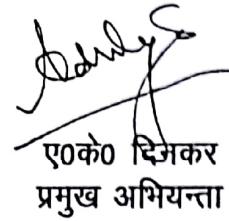 ए0के0 दिनकर
प्रमुख अभियन्ता